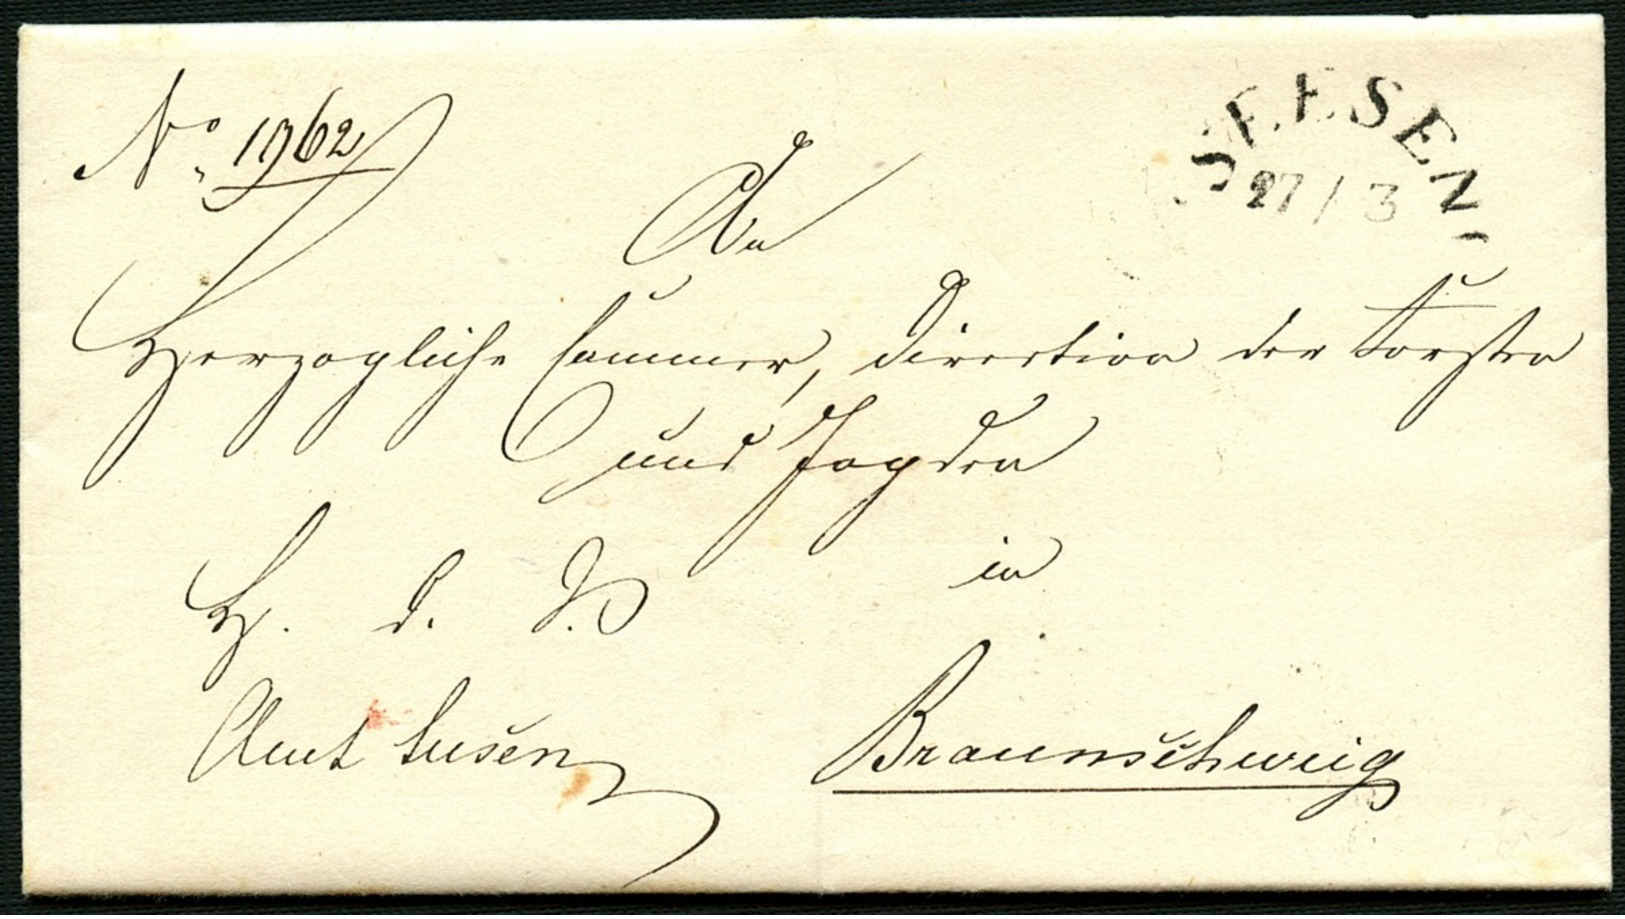 No. 1962
SEESEN
27 / 3
An
Herzogliche Cammer, Direction der Forsten
und Jagden
in
H. d. S.
Amt Seesen
Braunschweig